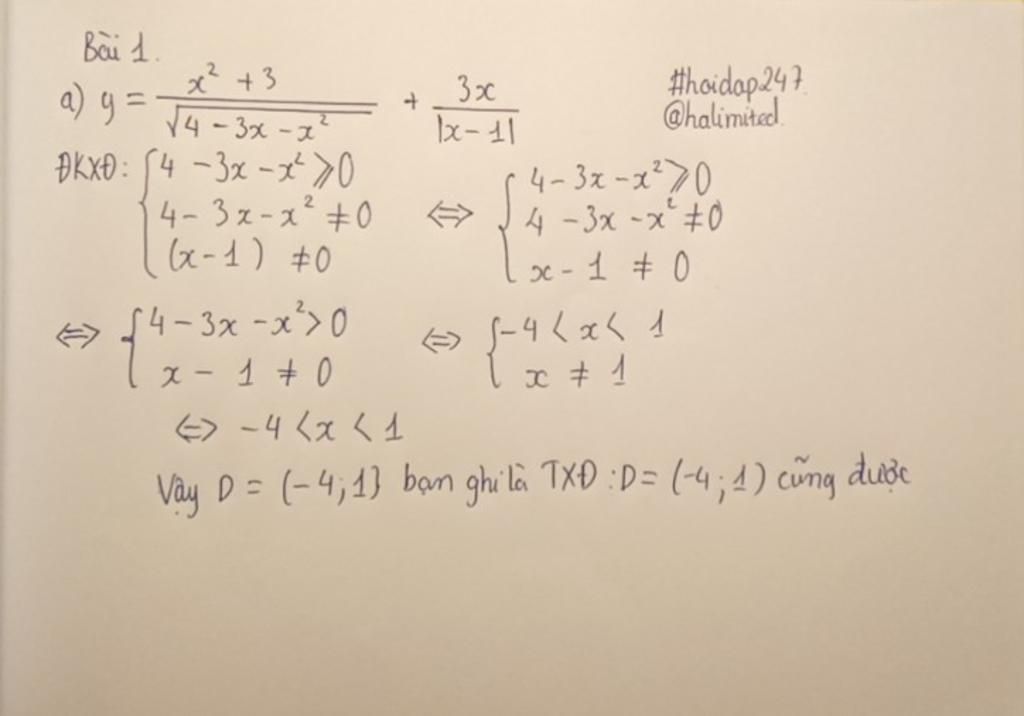 Bài 1.
a) y = x² + 3 / √4 - 3x - x² + 3x / |x - 1|
#hoidap247.
@halimited.
ĐKXĐ: { 4 - 3x - x² ⩾ 0 ⇔ { 4 - 3x - x² ⩾ 0
4 - 3x - x² ≠ 0 4 - 3x - x² ≠ 0
(x - 1) ≠ 0 x - 1 ≠ 0
⇔ { 4 - 3x - x² > 0 ⇔ { -4 < x < 1
x - 1 ≠ 0 x ≠ 1
⇔ -4 < x < 1
Vậy D = (-4; 1) bạn ghi là TXĐ : D = (-4; 1) cũng được